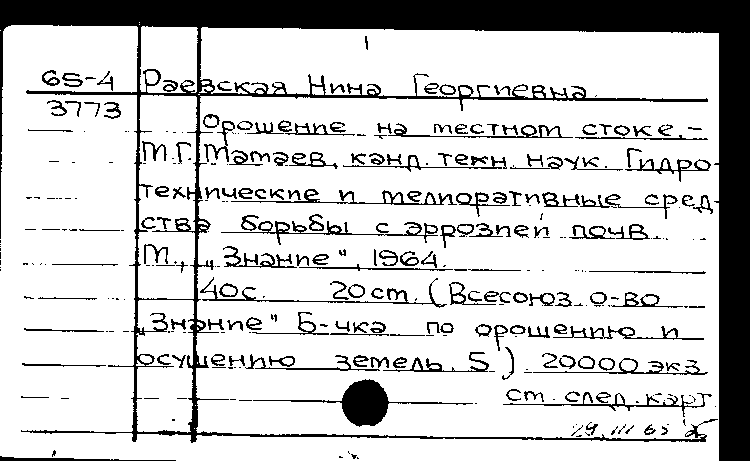 1
65-4 Раевская, Нина Георгиевна.
3773
Орошение на местном стоке.-
М.Г. Матаев, канд. техн. наук. Гидро-
технические и мелиоративные сред-
ства борьбы с эррозией почв.
М., „Знание", 1964.
40с. 20см. (Всесоюз. о-во
„Знание" Б-чка по орошению и
осушению земель. 5) 20000 экз
см. след. карт
29.III 65